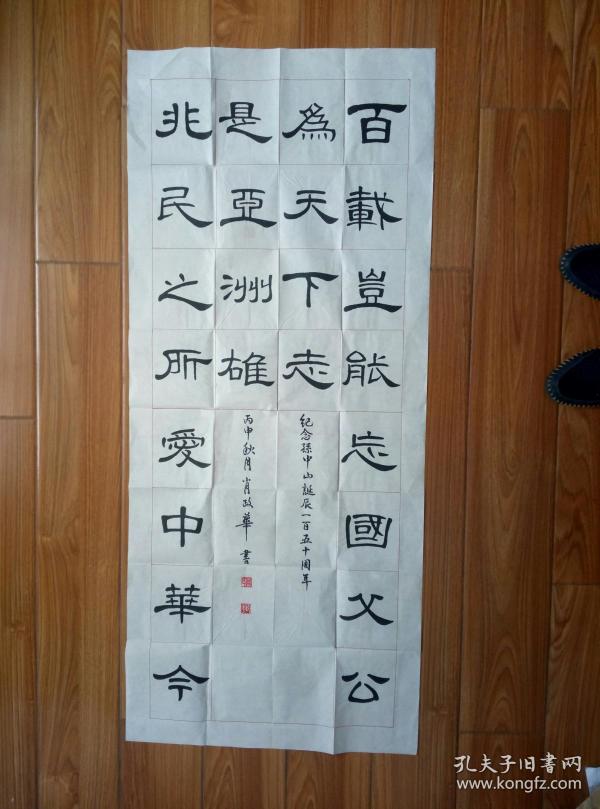 百載豈能忘國父公
為天下志
紀念孫中山誕辰一百五十周年
兆民之所愛中華今
是亞洲雄
丙申秋月 肖政華 書
孔夫子旧书网
www.kongfz.com